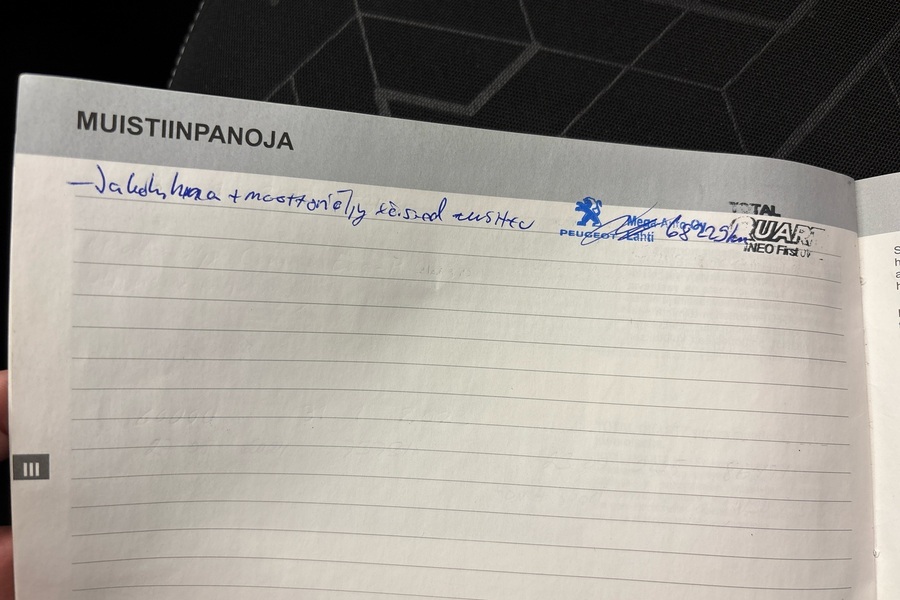 MUISTIINPANOJA
– Jakohihna + moottoriöljy
PEUGEOT
Mega Auto Oy
Lahti
68 229 km
TOTAL
QUARTZ
INEO First
III